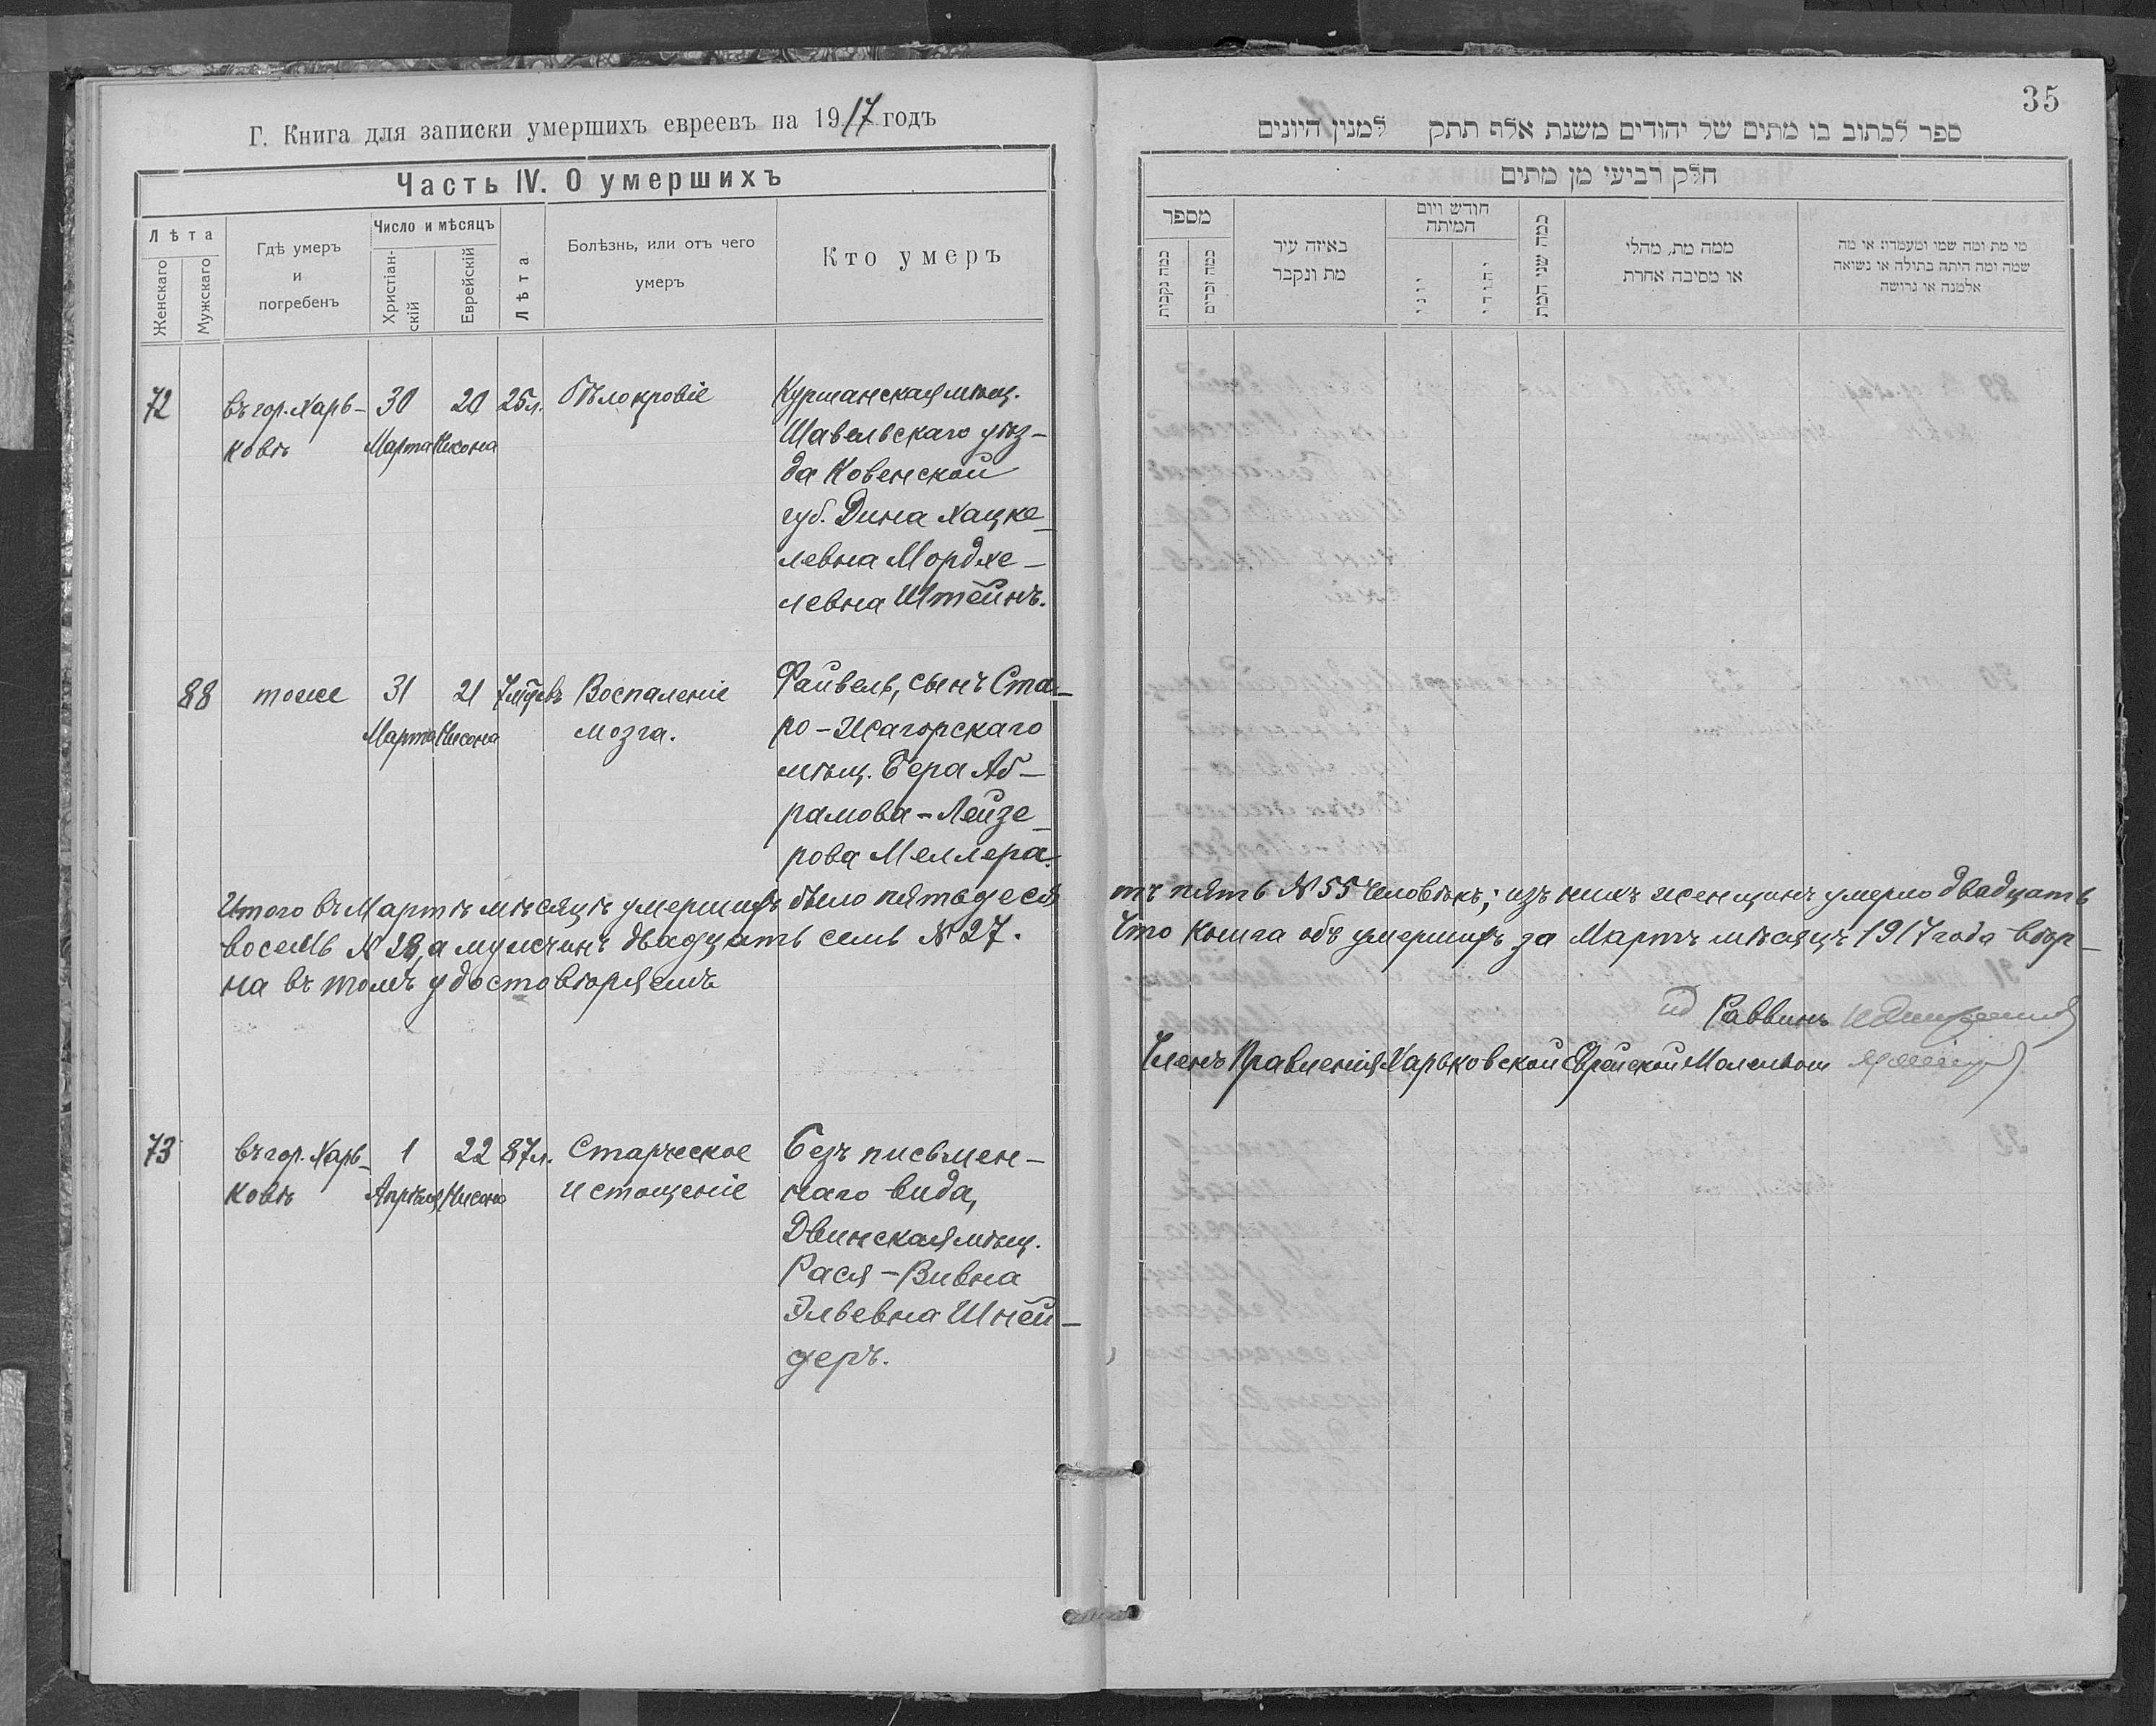 Г. Книга для записки умершихъ евреевъ на 1917 годъ
Часть IV. О умершихъ
Лѣта
Женскаго
Мужскаго
Гдѣ умеръ
и
погребенъ
Число и мѣсяцъ
Христіан-
скій
Еврейскій
Лѣта
Болѣзнь, или отъ чего
умеръ
Кто умеръ
72
въ гор. Харь-
ковѣ
30
Марта
20
Нисона
25 л.
Бѣлокровіе
Куршанская мѣщ.
Шавельскаго уѣз-
да Ковенской
губ. Дина Хацке-
левна Мордхе-
левна Штейнъ.
88
тоже
31
Марта
21
Нисона
7 мѣсѣвъ
Воспаленіе
мозга.
Файвель, сынъ Ста-
ро-Жагорскаго
мѣщ. Бера Аб-
рамова-Лейзе-
рова Меллера.
Итого въ Мартѣ мѣсяцѣ умершихъ было пятьдеся
восемь № 28, а мужчинъ двадцать семь № 27.
на въ томъ удостовѣряемъ
73
въ гор. Харь-
ковѣ
1
Апрѣля
22
Нисона
87 л.
Старческое
истощеніе
Безъ письмен-
наго вида,
Двинская мѣщ.
Рася-Вивна
Эльевна Шней-
деръ.
35
ספר לכתוב בו מתים של יהודים משנת אלף תתק למנין היונים
חלק רביעי מן מתים
מספר
כמה נקבות
כמה זכרים
באיזה עיר
מת ונקבר
חודש ויום
המיתה
יוני
יהודי
כמה שני המת
ממה מת, מהלי
או מסיבה אחרת
מי מת ומה שמו ומעמדו: או מה
שמה ומה היתה בתולה או נשואה
אלמנה או גרושה
тъ пять № 55 человѣкъ; изъ нихъ женщинъ умерло двадцать
Что книга объ умершихъ за Мартъ мѣсяцъ 1917 года вѣр-
ид Раввинъ
Членъ Правленія Харьковской Еврейской Молельни